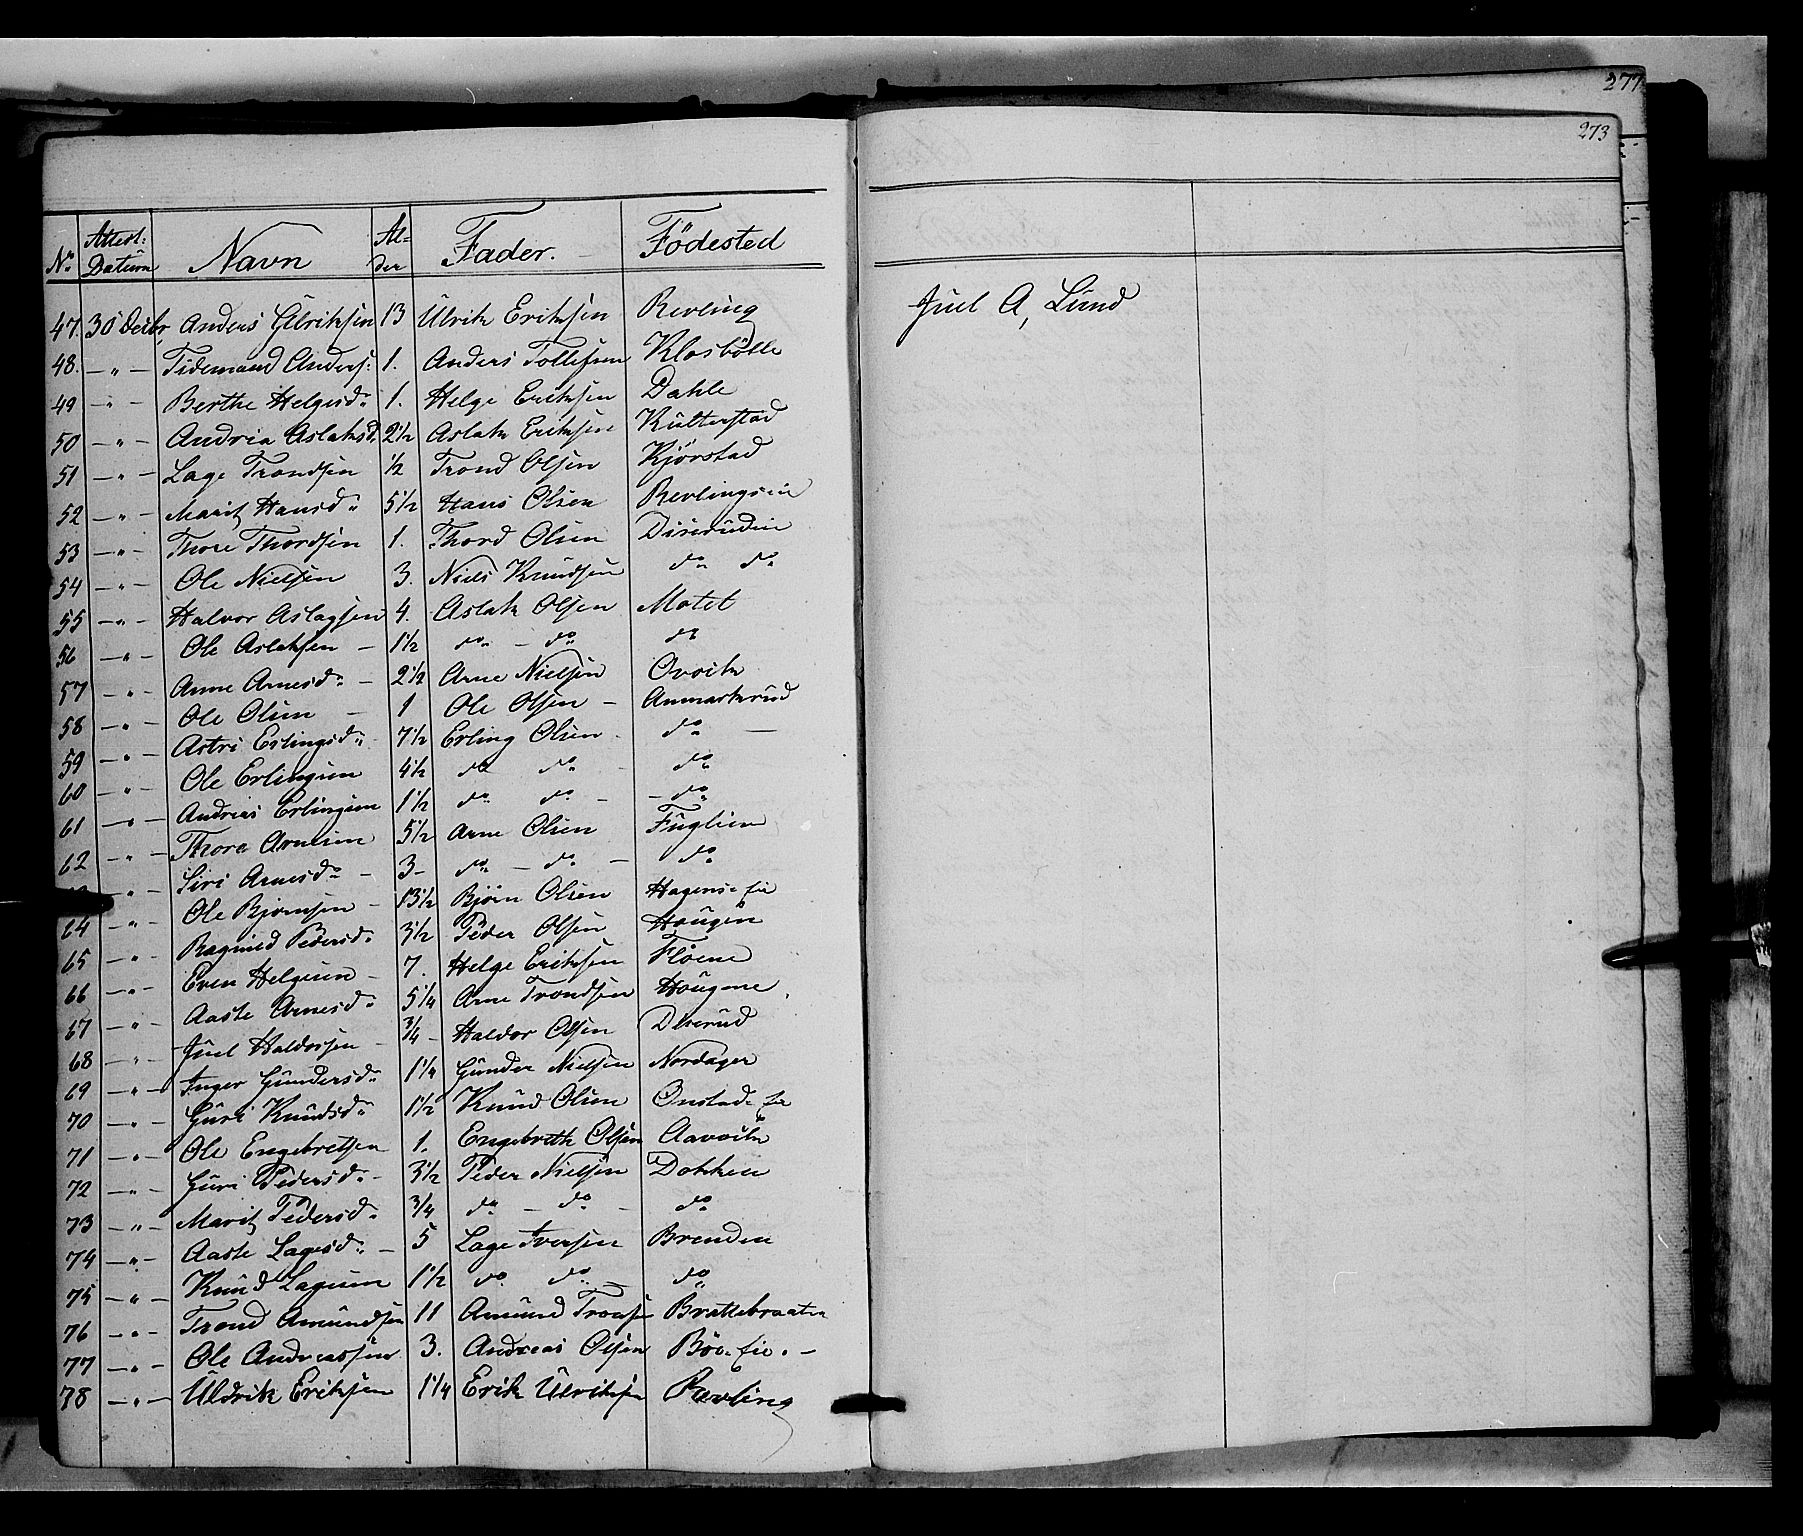 277
273
No Attest: Datum Navn Alder Fader. Födested
47. 30 Decbr, Anders Ulriksen 13 Ulrik Eriksen Revling
48. — " — Tidemand Anders: 1. Anders Tollefsen Klosbölle
49 — " — Berthe Helgesd: 1. Helge Eriksen Dahle
50 — " — Andrea Aslaksd. 2 1/2 Aslak Eriksen Kulterstad
51 — " — Lage Trondsen 1/2 Trond Olsen Kjörstad
52 — " — Marit Hansd: 5 1/2 Hans Olsen Revlingseie
53 — " — Thore Thordsen 1. Thord Olsen Diserudeie
54 — " — Ole Nielsen 3. Niels Knudsen do do
55 — " — Halvor Aslagsen 4. Aslak Olsen Motet
56 — " — Ole Aslaksen — 1 1/2 do — do do
57 — " — Anne Arnesd: — 2 1/2 Arne Nielsen Ovoik
58 — " — Ole Olsen — 1 Ole Olsen — Anmarkrud
59 — " — Astri Erlingsd: 7 1/2 Erling Olsen do —
60 — " — Ole Erlingsen 4 1/2 do do — do
61 — " — Andreas Erlingsen 1 1/2 do do — — do
62 — " — Thore Arnesen 5 1/2 Arne Olsen Fuglien
— " — Siri Arnesd: — 3 — do — do — do
64 — " — Ole Bjørnsen — 13 1/2 Bjørn Olsen Hagens: eie
65 — " — Ragnild Pedersd: 3 1/2 Peder Olsen Hougen
66 — " — Even Helgesen — 7. Helge Eriksen Floene
67 — " — Aaste Arnesd: 5 1/4 Arne Trondsen Hougene
68 — " — Juel Haldorsen — 3/4 — Haldor Olsen Diserud
69 — " — Inger Gundersd: 1 1/4 Gunder Nielsen Nordager
70 — " — Guri Knudsd: 1 1/2 Knud Olsen Onstad: eie
71 — " — Ole Engebretsen 1. Engebreth Olsen Aavoik
72 — " — Guri Pedersd: — 3 1/2 Peder Nielsen Dokken
73 — " — Marit Pedersd: 3/4 do — do — do
74 — " — Aaste Lagesd: — 5 Lage Iversen Brenden
75 — " — Knud Lagesen 1 1/2 do do — do
76 — " — Trond Amundsen 11 Amund Tronsen Brattebraaten
77 — " — Ole Andreassen 3. Andreas Olsen Böe: eie. —
78 — " — Uldrik Eriksen 1 1/4 Erik Ulriksen Revling
Juel A, Lund